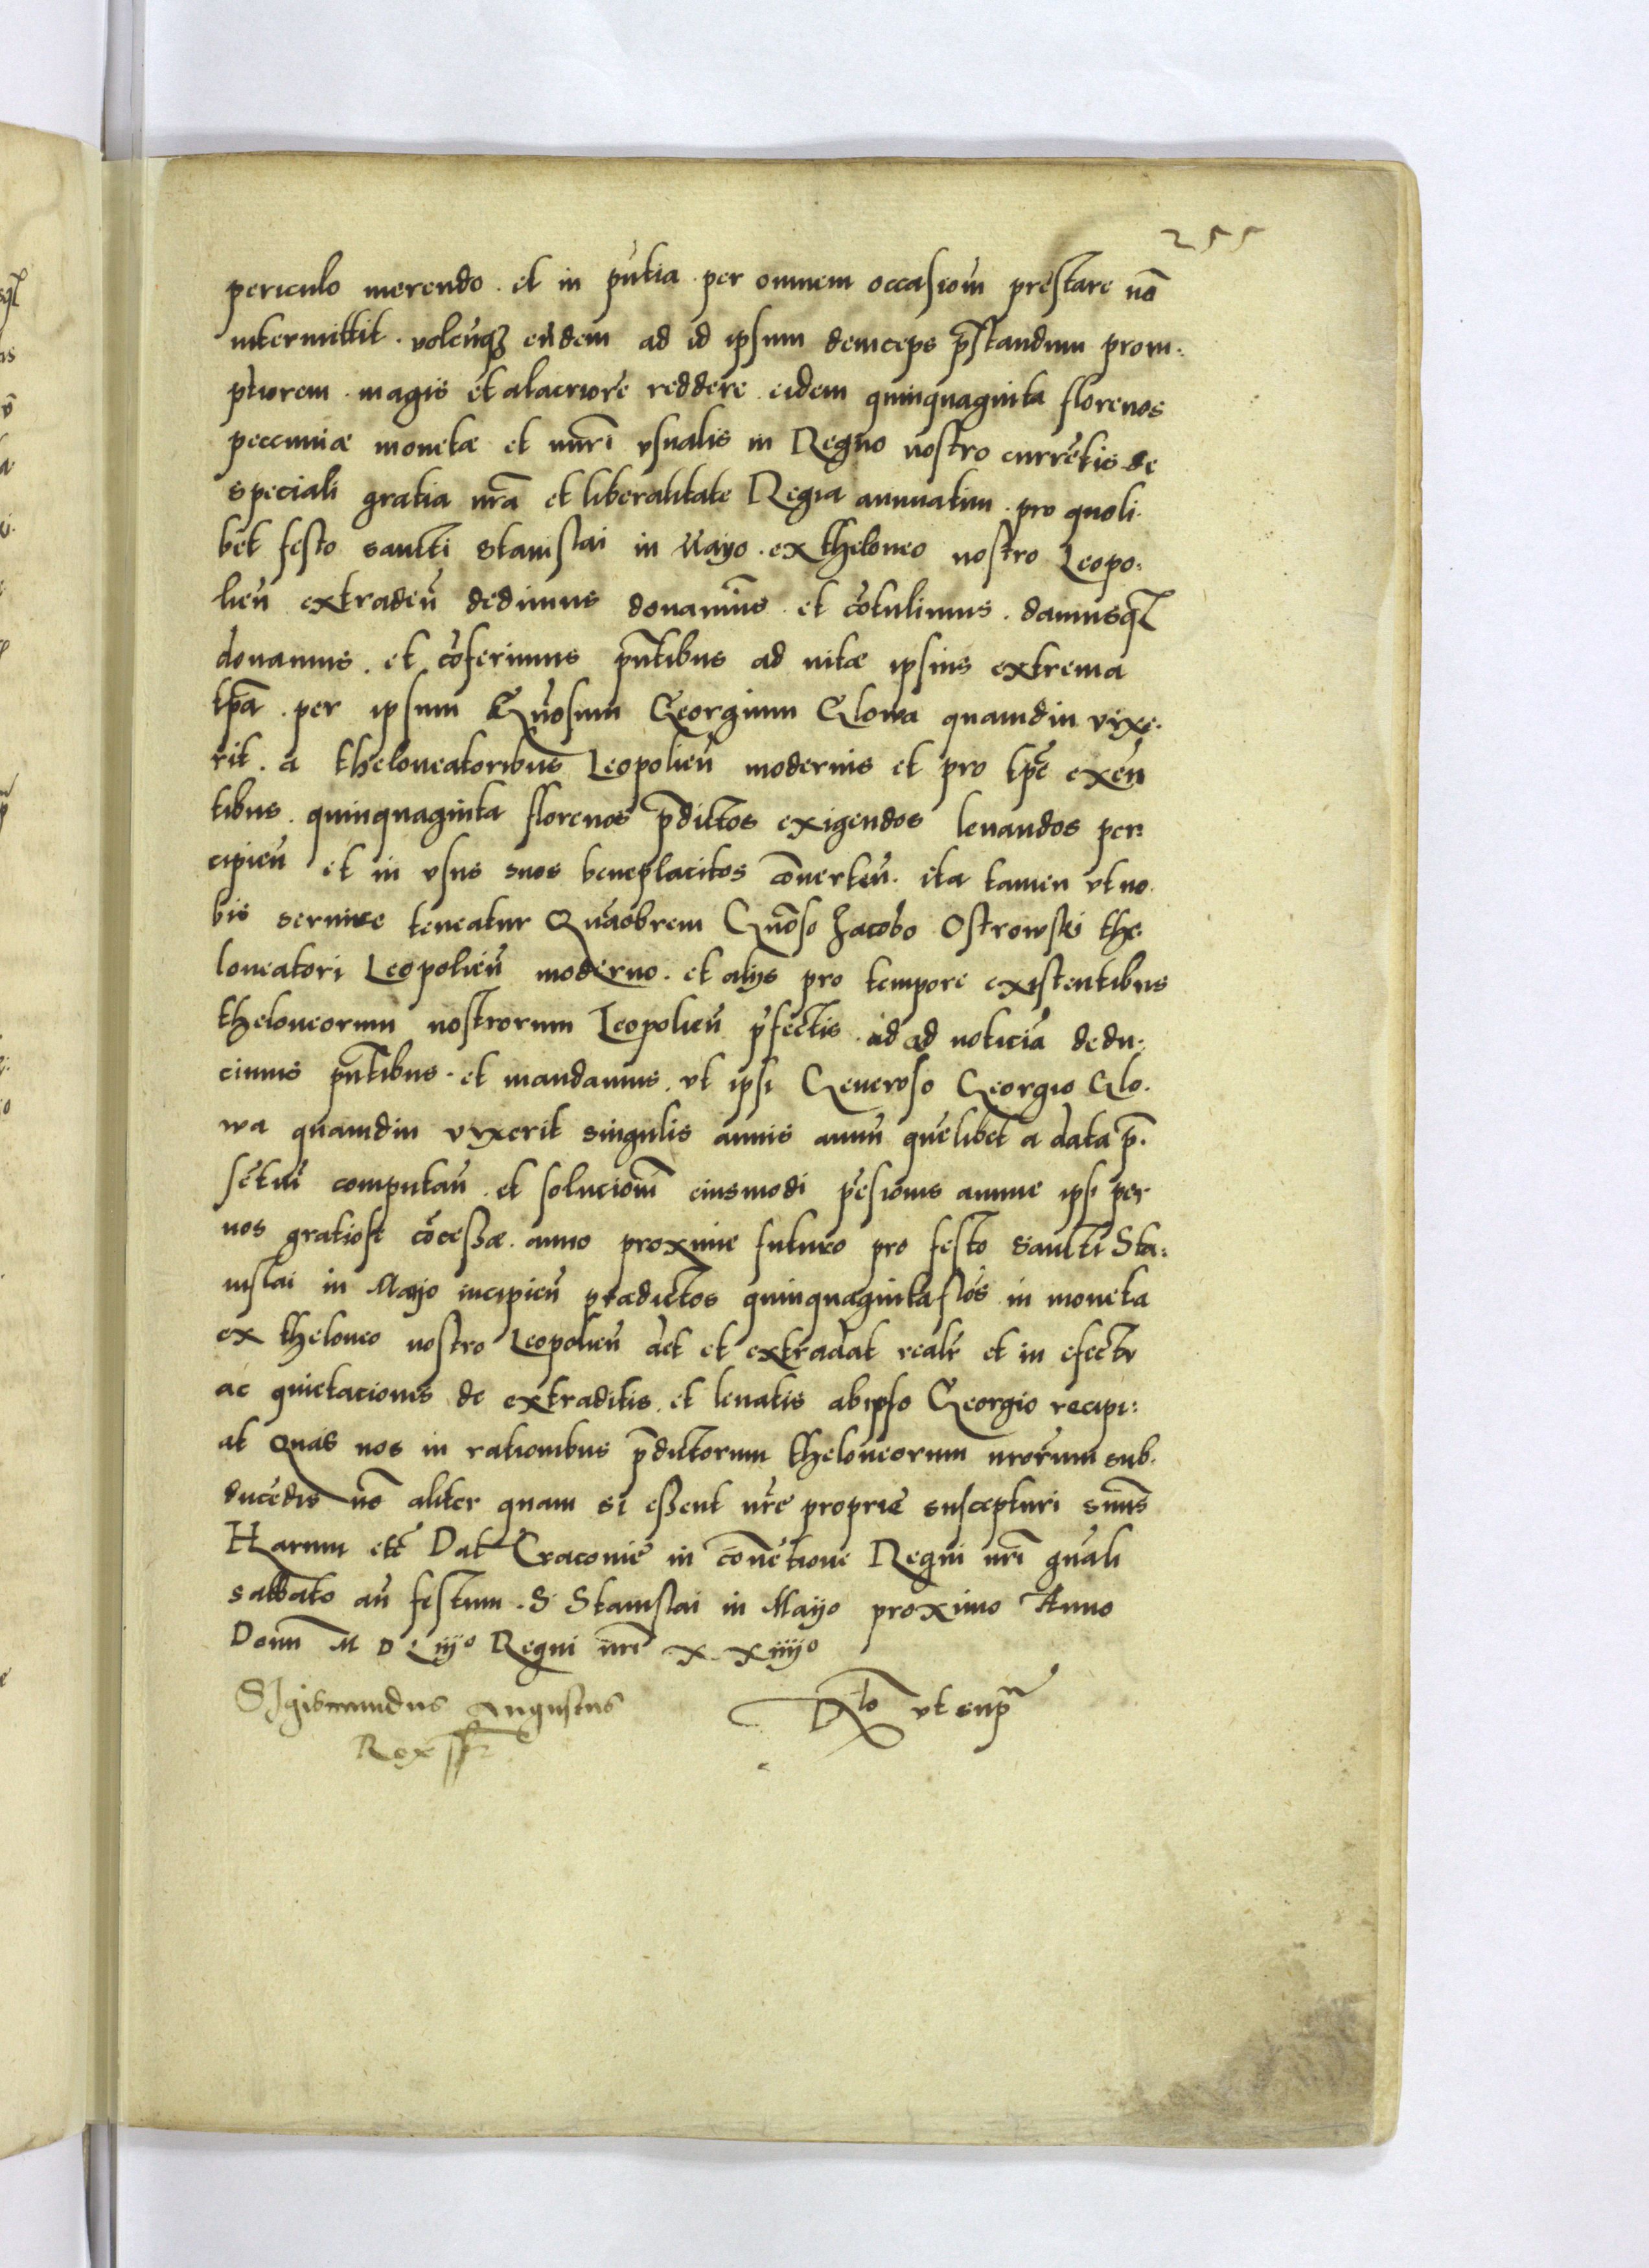 255
periculo merendo . et in pn̄tia . per omnem occasionē prestare nō
intermittit . volen̄qꝫ eūdem ad id ipsum deinceps p̄standum prom:
ptiorem . magis et alacriorē reddere . eidem quinquaginta florenos
peccuniæ monetæ et nūri vsualis in Regno nostro currētis de
speciali gratia nrā et liberalitate Regia annuatim . pro quoli.
bet festo sancti Stanislai in Mayo . ex theloneo nostro Leopo:
lien̄ extraden̄ dedimus donauimus . et cōtulimus . damusqꝫ
donamus . et cōferimus pn̄tibus ad vitæ ipsius extrema
tp̄a . per ipsum Gn̄osum Georgium Glowa quamdiu vixe:
rit . a theloneatoribus Leopolien̄ modernis et pro tp̄e exn̄
tibus . quinquaginta florenos p̄dictos exigendos leuandos per:
cipien̄ et in vsus suos beneplacitos cōuerten̄ . ita tamen vt no.
bis seruire teneatur Quāobrem Gn̄oso Jacobo Ostrowski the:
loneatori Leopolien̄ moderno . et alijs pro tempore existentibus
theloneorum nostrorum Leopolien̄ p̄fectis . id ad noticiā dedu:
cimus pn̄tibus . et mandamus . vt ipsi Generoso Georgio Glo.
wa quamdiu vixerit singulis annis annū quēlibet a data p̄.
sētiū computan̄ . et solucionē eiusmodi pēsionis annuæ ipsi per
nos gratiose cōcessæ . anno proxime futuro pro festo sancti Sta:
nislai in Mayo incipien̄ prædictos quinquaginta flōs in moneta
ex theloneo nostro Leopolien̄ det et extradat realr̄ et in efectu
ac quietaciones de extraditis . et leuatis ab ipso Georgio recipi:
at Quas nos in rationibus p̄dictorum theloneorum nrōrum sub.
ducēdis nō aliter quam si essent nrē propriē suscepturi sumus
Harum etc̄ Dat Cracoviē in cōuētione Regni nrī gn̄ali
sabbato an̄ festum . S Stanislai in Mayo proximo Anno
Domī M D Liijº Regni nrī X Xiiijº
SIgismundus Augustus
Rex ss
Rlō vt supra